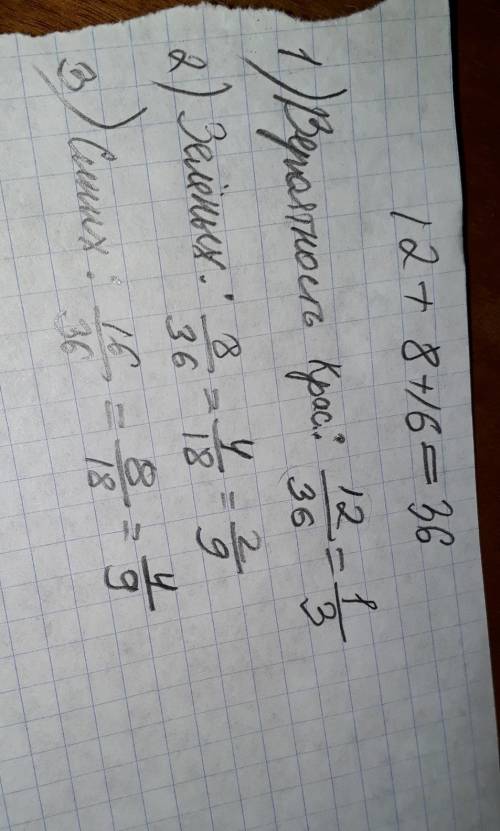 12 + 8 + 16 = 36
1) Вероятность Крас.: 12/36 = 1/3
2) Зелёных: 8/36 = 4/18 = 2/9
3) Синих: 16/36 = 8/18 = 4/9